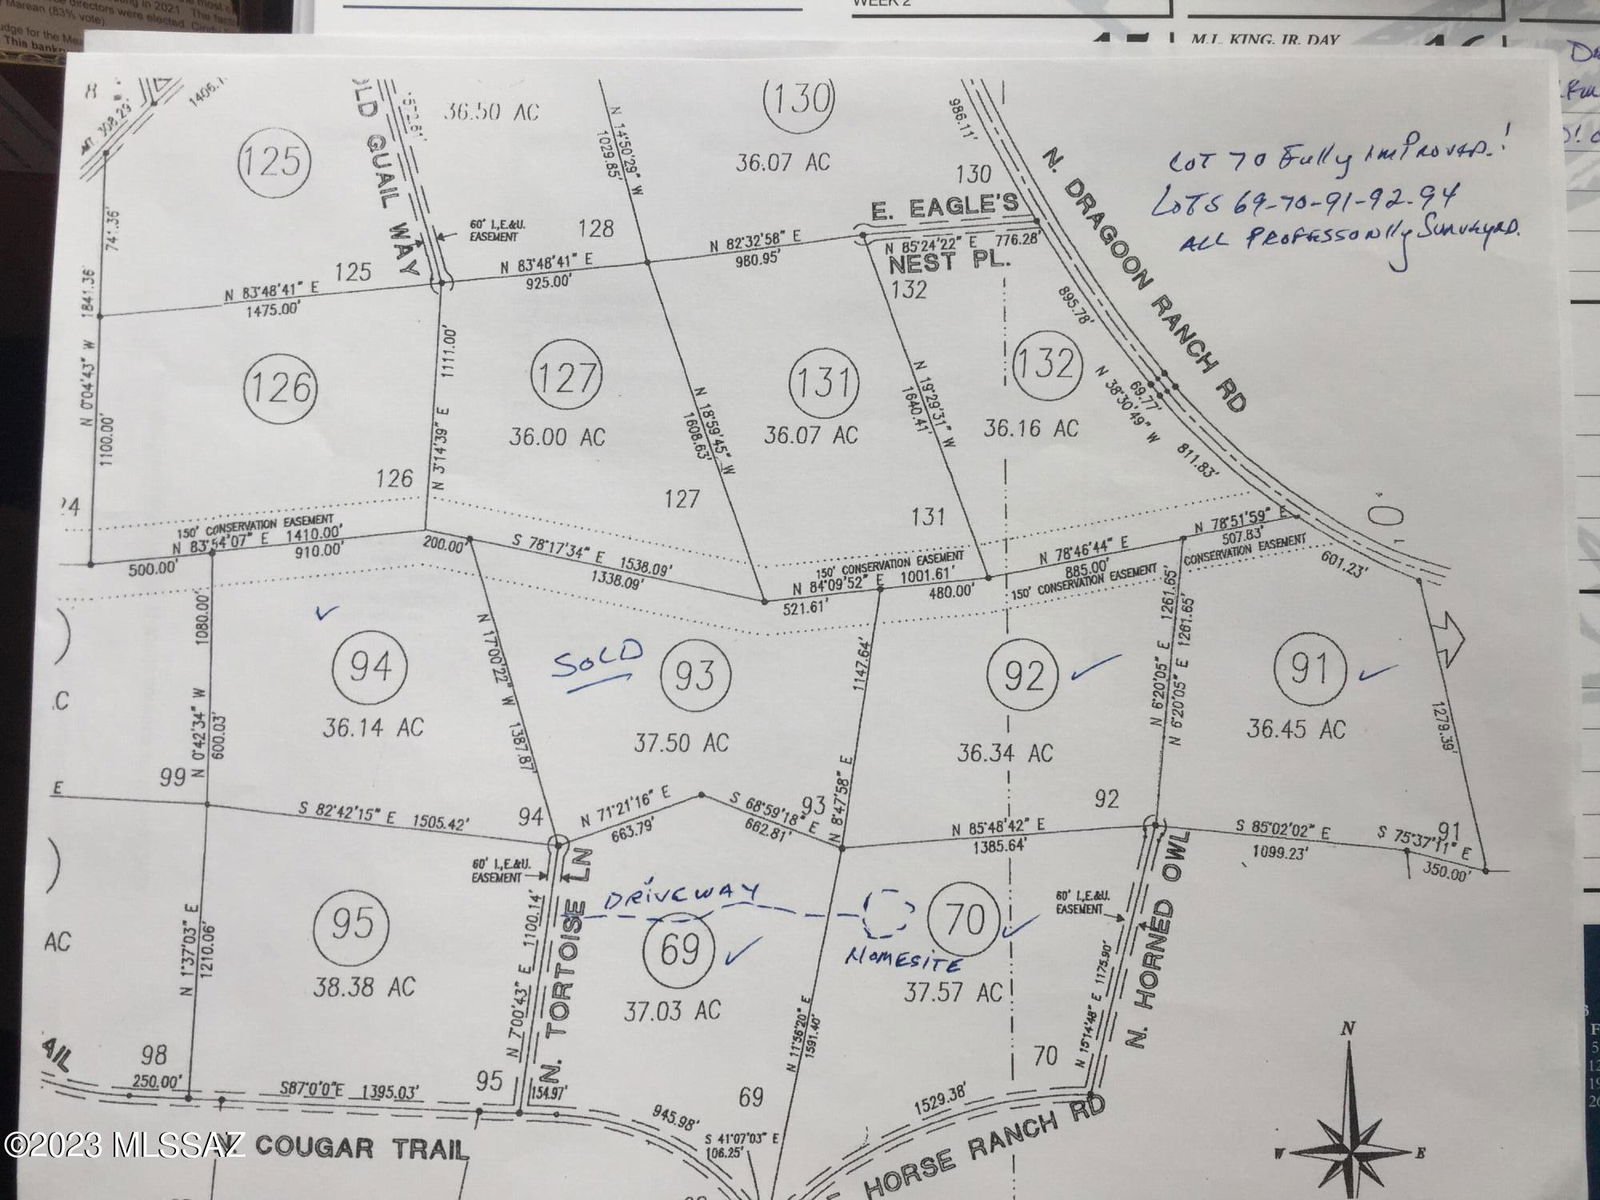 directors were elected.
Marean (83% vote).
WEEK 2
M.L. KING, JR. DAY
1406.1
308.29'
OLD QUAIL WAY
1572.81'
36.50 AC
N 14°50'29" W
1029.85'
130
36.07 AC
986.11'
130
N. DRAGOON RANCH RD
LOT 70 Fully IMPROVED.!
LOTS 69-70-91-92-94
ALL PROFESSONlly SURVEYED.
125
741.36'
1841.36'
60' I.,E.&U.
EASEMENT
128
E. EAGLE'S
NEST PL.
N 85°24'22" E
776.28'
N 82°32'58" E
980.95'
N 83°48'41" E
925.00'
125
N 83°48'41" E
1475.00'
132
895.78'
N 0°04'43" W
1100.00'
126
1111.00'
N 3°14'39" E
127
36.00 AC
N 18°59'45" W
1608.63'
131
36.07 AC
N 19°29'31" W
1640.41'
132
36.16 AC
69.77'
N 38°30'49" W
811.83'
126
127
131
150' CONSERVATION EASEMENT
N 83°54'07" E 1410.00'
500.00'
910.00'
200.00'
S 78°17'34" E 1538.09'
1338.09'
150' CONSERVATION EASEMENT
N 84°09'52" E 1001.61'
521.61'
480.00'
N 78°46'44" E
885.00'
150' CONSERVATION EASEMENT
N 78°51'59" E
507.83'
CONSERVATION EASEMENT
601.23'
1080.00'
94
36.14 AC
N 17°00'22" W 1387.87'
SOLD
93
37.50 AC
1147.64'
N 8°47'58" E
92
36.34 AC
N 6°20'05" E 1261.65'
N 6°20'05" E 1261.65'
91
36.45 AC
1279.39'
N 0°42'34" W
600.03'
99
E
S 82°42'15" E 1505.42'
94
N 71°21'16" E
663.79'
S 68°59'18" E
662.81'
93
92
N 85°48'42" E
1385.64'
S 85°02'02" E
1099.23'
91
S 75°37'11" E
350.00'
60' I.,E.&U.
EASEMENT
DRIVEWAY
AC
N 1°37'03" E
1210.06'
95
38.38 AC
N 7°00'43" E 1100.14'
N. TORTOISE LN
69
37.03 AC
N 11°56'20" E
1591.40'
HOMESITE
70
37.57 AC
60' I.,E.&U.
EASEMENT
N 15°14'48" E 1175.90'
N. HORNED OWL
AIL
98
250.00'
S87°0'0"E 1395.03'
95
154.97'
945.98'
69
S 41°07'03" E
106.25'
70
1529.38'
HORSE RANCH RD
COUGAR TRAIL
N
W
E
©2023 MLSSAZ